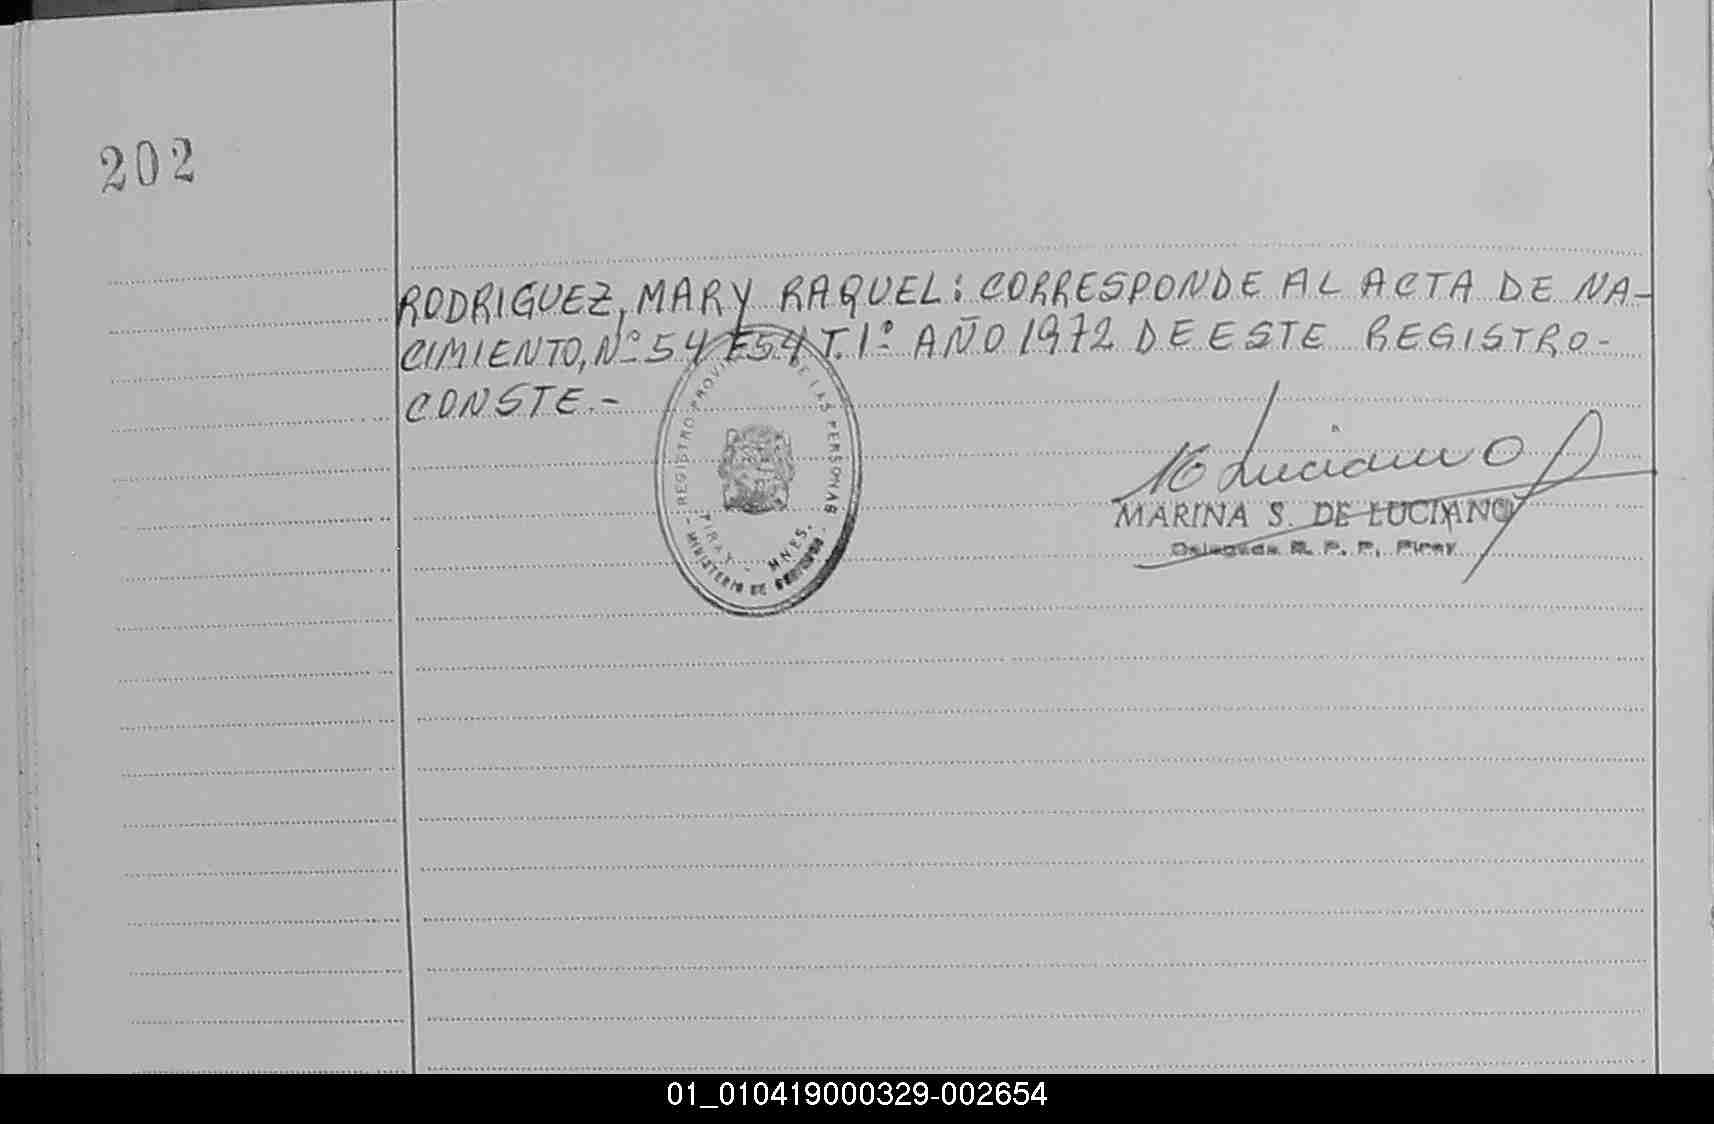 202
RODRIGUEZ, MARY RAQUEL: CORRESPONDE AL ACTA DE NA-
CIMIENTO, Nº 54 F 54 T. 1º AÑO 1972 DE ESTE REGISTRO-
CONSTE.-
REGISTRO PROVINCIAL DE LAS PERSONAS
PIRAY - MNES.
MINISTERIO DE GOBIERNO
Luciano
MARINA S. DE LUCIANO
Delegada R. P. P. Piray
01_010419000329-002654